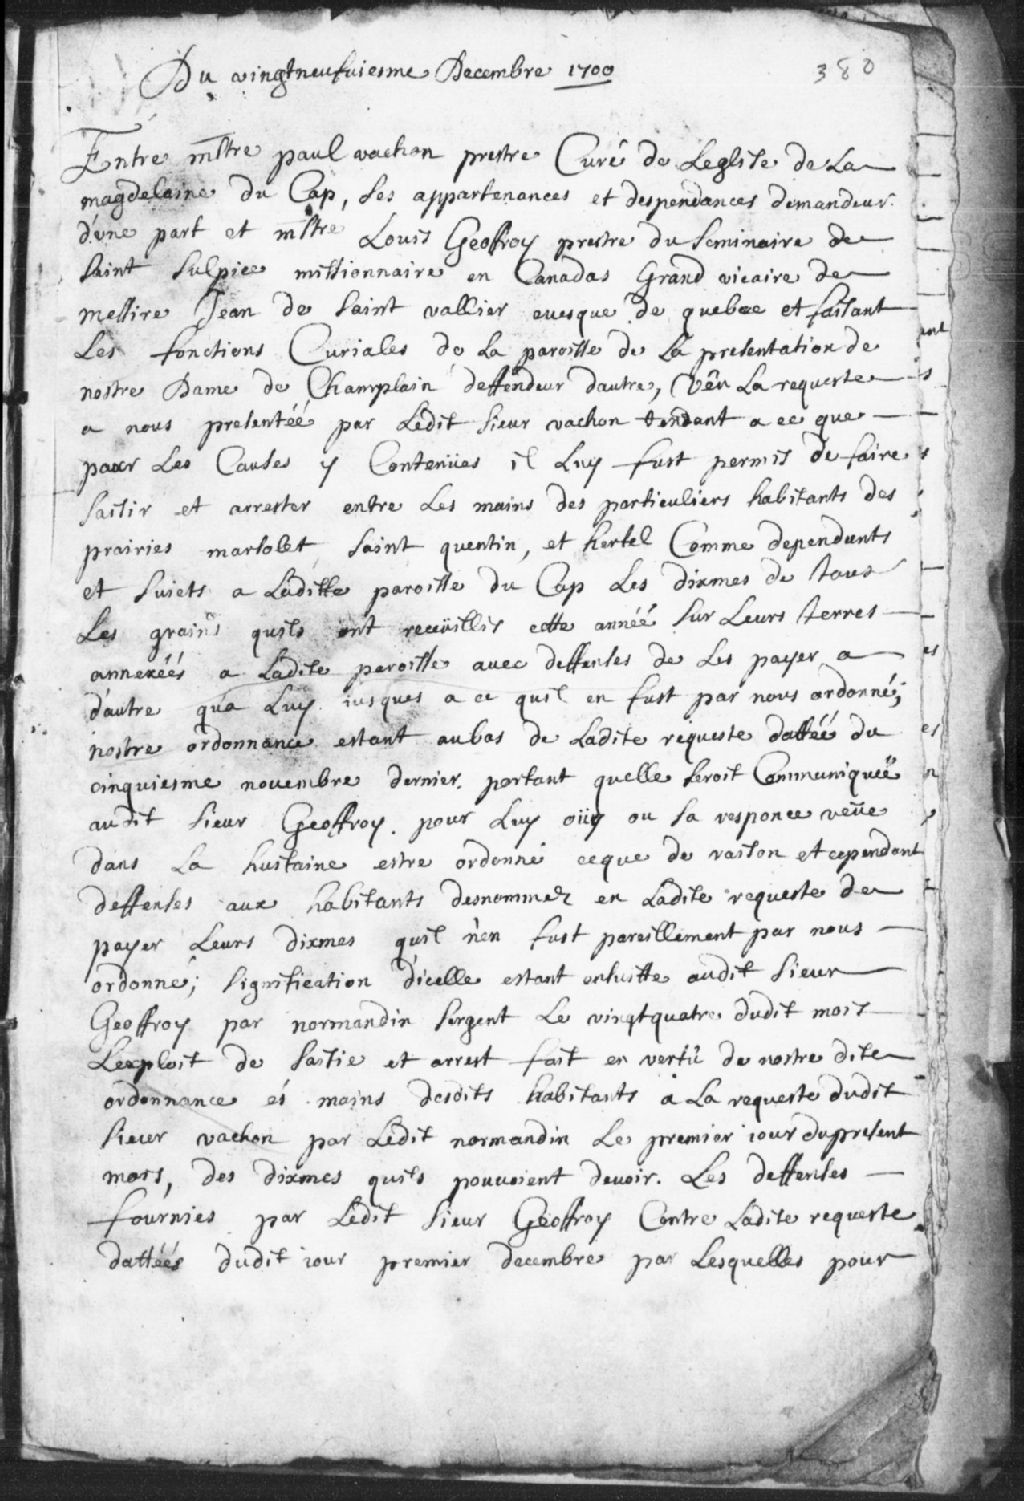 Du vingtneufuiesme Decembre 1700
380
Entre mstre paul vachon prestre Curé de Leglise de La
magdelaine du Cap, ses appartenances et despendances demandeur
d'une part et mstre Louis Geoffroy prestre du seminaire de
saint sulpice missionnaire en Canadas Grand vicaire de
messire Jean de saint vallier euesque de quebec et faisant
Les fonctions Curiales de La paroisse de La presentation de
nostre Dame de Champlain deffendeur dautre, Veu La requeste
a nous presentéé par Ledit sieur vachon tendant a ce que
pour Les Causes y Contenües il Luy fust permis de faire
saisir et arrester entre Les mains des particuliers habitants des
prairies marsolet saint quentin, et hertel Comme dependants
et suiets a Laditte paroisse du Cap Les dixmes de tous
Les grains quils ont recüillis cette annéé sur Leurs terres
annexéés a Ladite paroisse avec deffenses de Les payer a
d'autre qua Luy iusques a ce quil en fust par nous ordonné;
nostre ordonnance estant aubas de Ladite requeste dattéé du
cinquiesme novembre dernier. portant quelle seroit Communiqueë
audit sieur Geoffroy. pour Luy oüy ou sa responce veüe
dans La huitaine estre ordonné ceque de raison et cependant
deffenses aux habitants desnommez en Ladite requeste de
payer Leurs dixmes quil n'en fust pareillement par nous
ordonné; signification d'icelle estant ensuitte audit sieur
Geoffroy par normandin sergent Le vingtquatre dudit mois
Lexploit de saisie et arrest fait en vertu de nostre dite
ordonnance és mains desdits habitants a La requeste dudit
sieur vachon par Ledit normandin Le premier iour dupresent
mois, des dixmes quils pouvoient devoir. Les deffenses
fournies par Ledit sieur Geoffroy Contre Ladite requeste
dattéés dudit iour premier decembre par Lesquelles pour